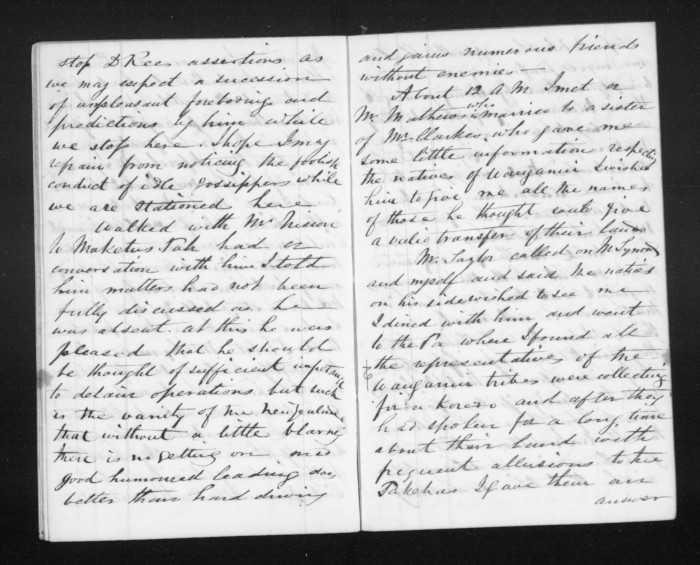 stop D Rees assertions as
we may expect a sucession
of unpleasant foreboding and
predictions by him while
we stop here. I hope I may
refrain from noticing the foolish
conduct of idle gossippers while
we are stationed here
Walked with Mr
to Maketus Pah had a
conversation with him I told
him matters had not been
fully discussed as he
was absent. at this he was
pleased that he should
be thought of sufficient importance
to delay operations but such
is the vanity of the New Zealander
that without a little blarney
there is no getting on and
good humoured leading does
better than hard driving
and gains numerous friends
without enemies
About 12 A.M. I met a
Mr Mathews who is married to a sister
of Mr Clarkes, who gave me
some little information respecting
the natives of Wanganui I wished
him to give me all the names
of those he thought could give
a valid transfer of their lands
Mr Taylor called on Mr Symonds
and myself and said the natives
on his side wished to see me
I dined with him and went
to the Pa where I found all
the representatives of the
Wanganui tribes were collecting
for a Korero and after they
had spoken for a long time
about their land with
frequent allusions to the
Pakehas I gave them an
answer